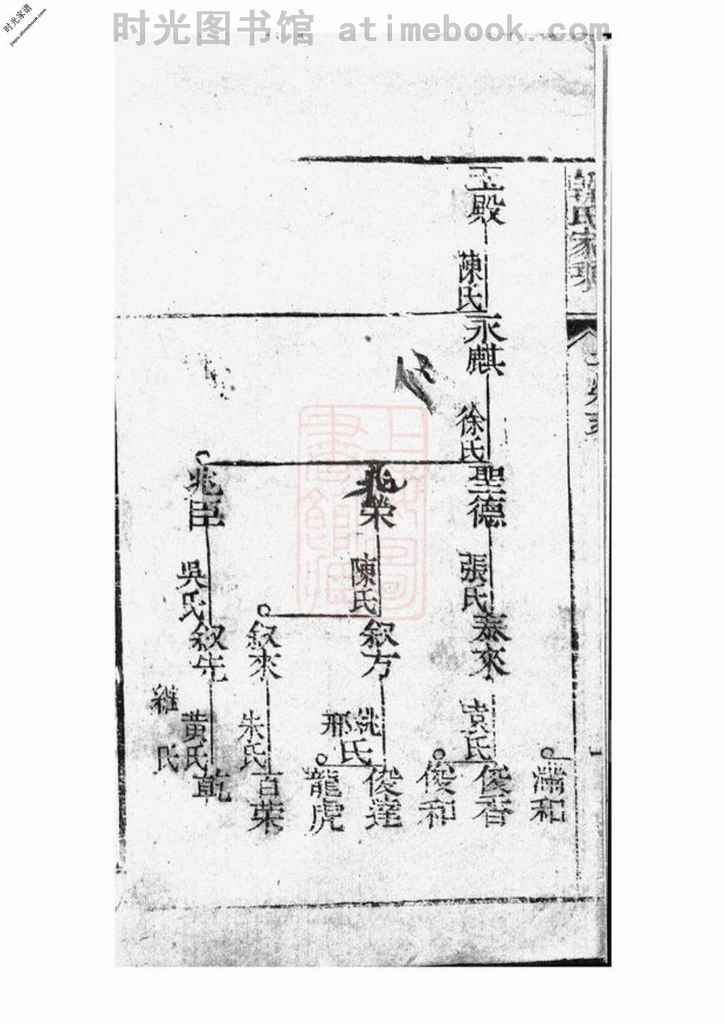 时光图书馆 & atimebook.com
时光家谱
氏家
滿和
玉殿
陳氏
永麒
徐氏
聖德
張氏
泰來
袁氏
俊香
俊和
兆榮
陳氏
叙方
姚
邢
氏
俊達
龍虎
叙來
朱氏
百榮
兆臣
吳氏
叙先
黄氏
維
氏
乾